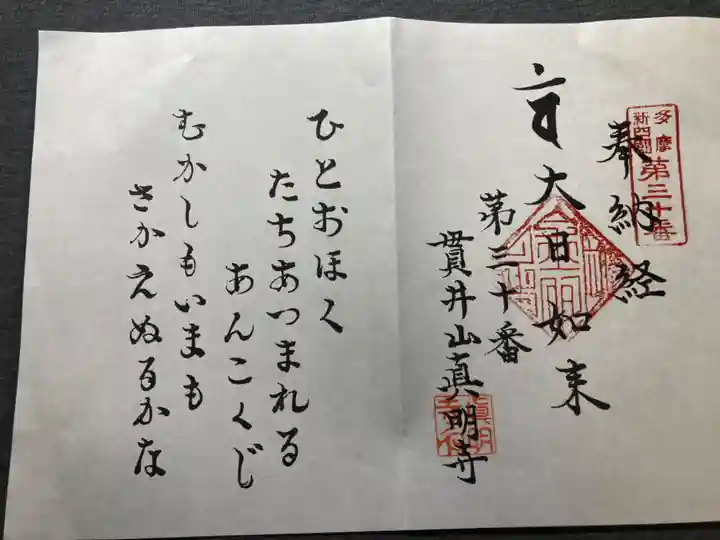 多摩
新四國
第三十番
奉納経
大日如来
第三十番
貫井山真明寺
ひとおほく
たちあつまれる
あんこくじ
むかしもいまも
さかえぬるかな